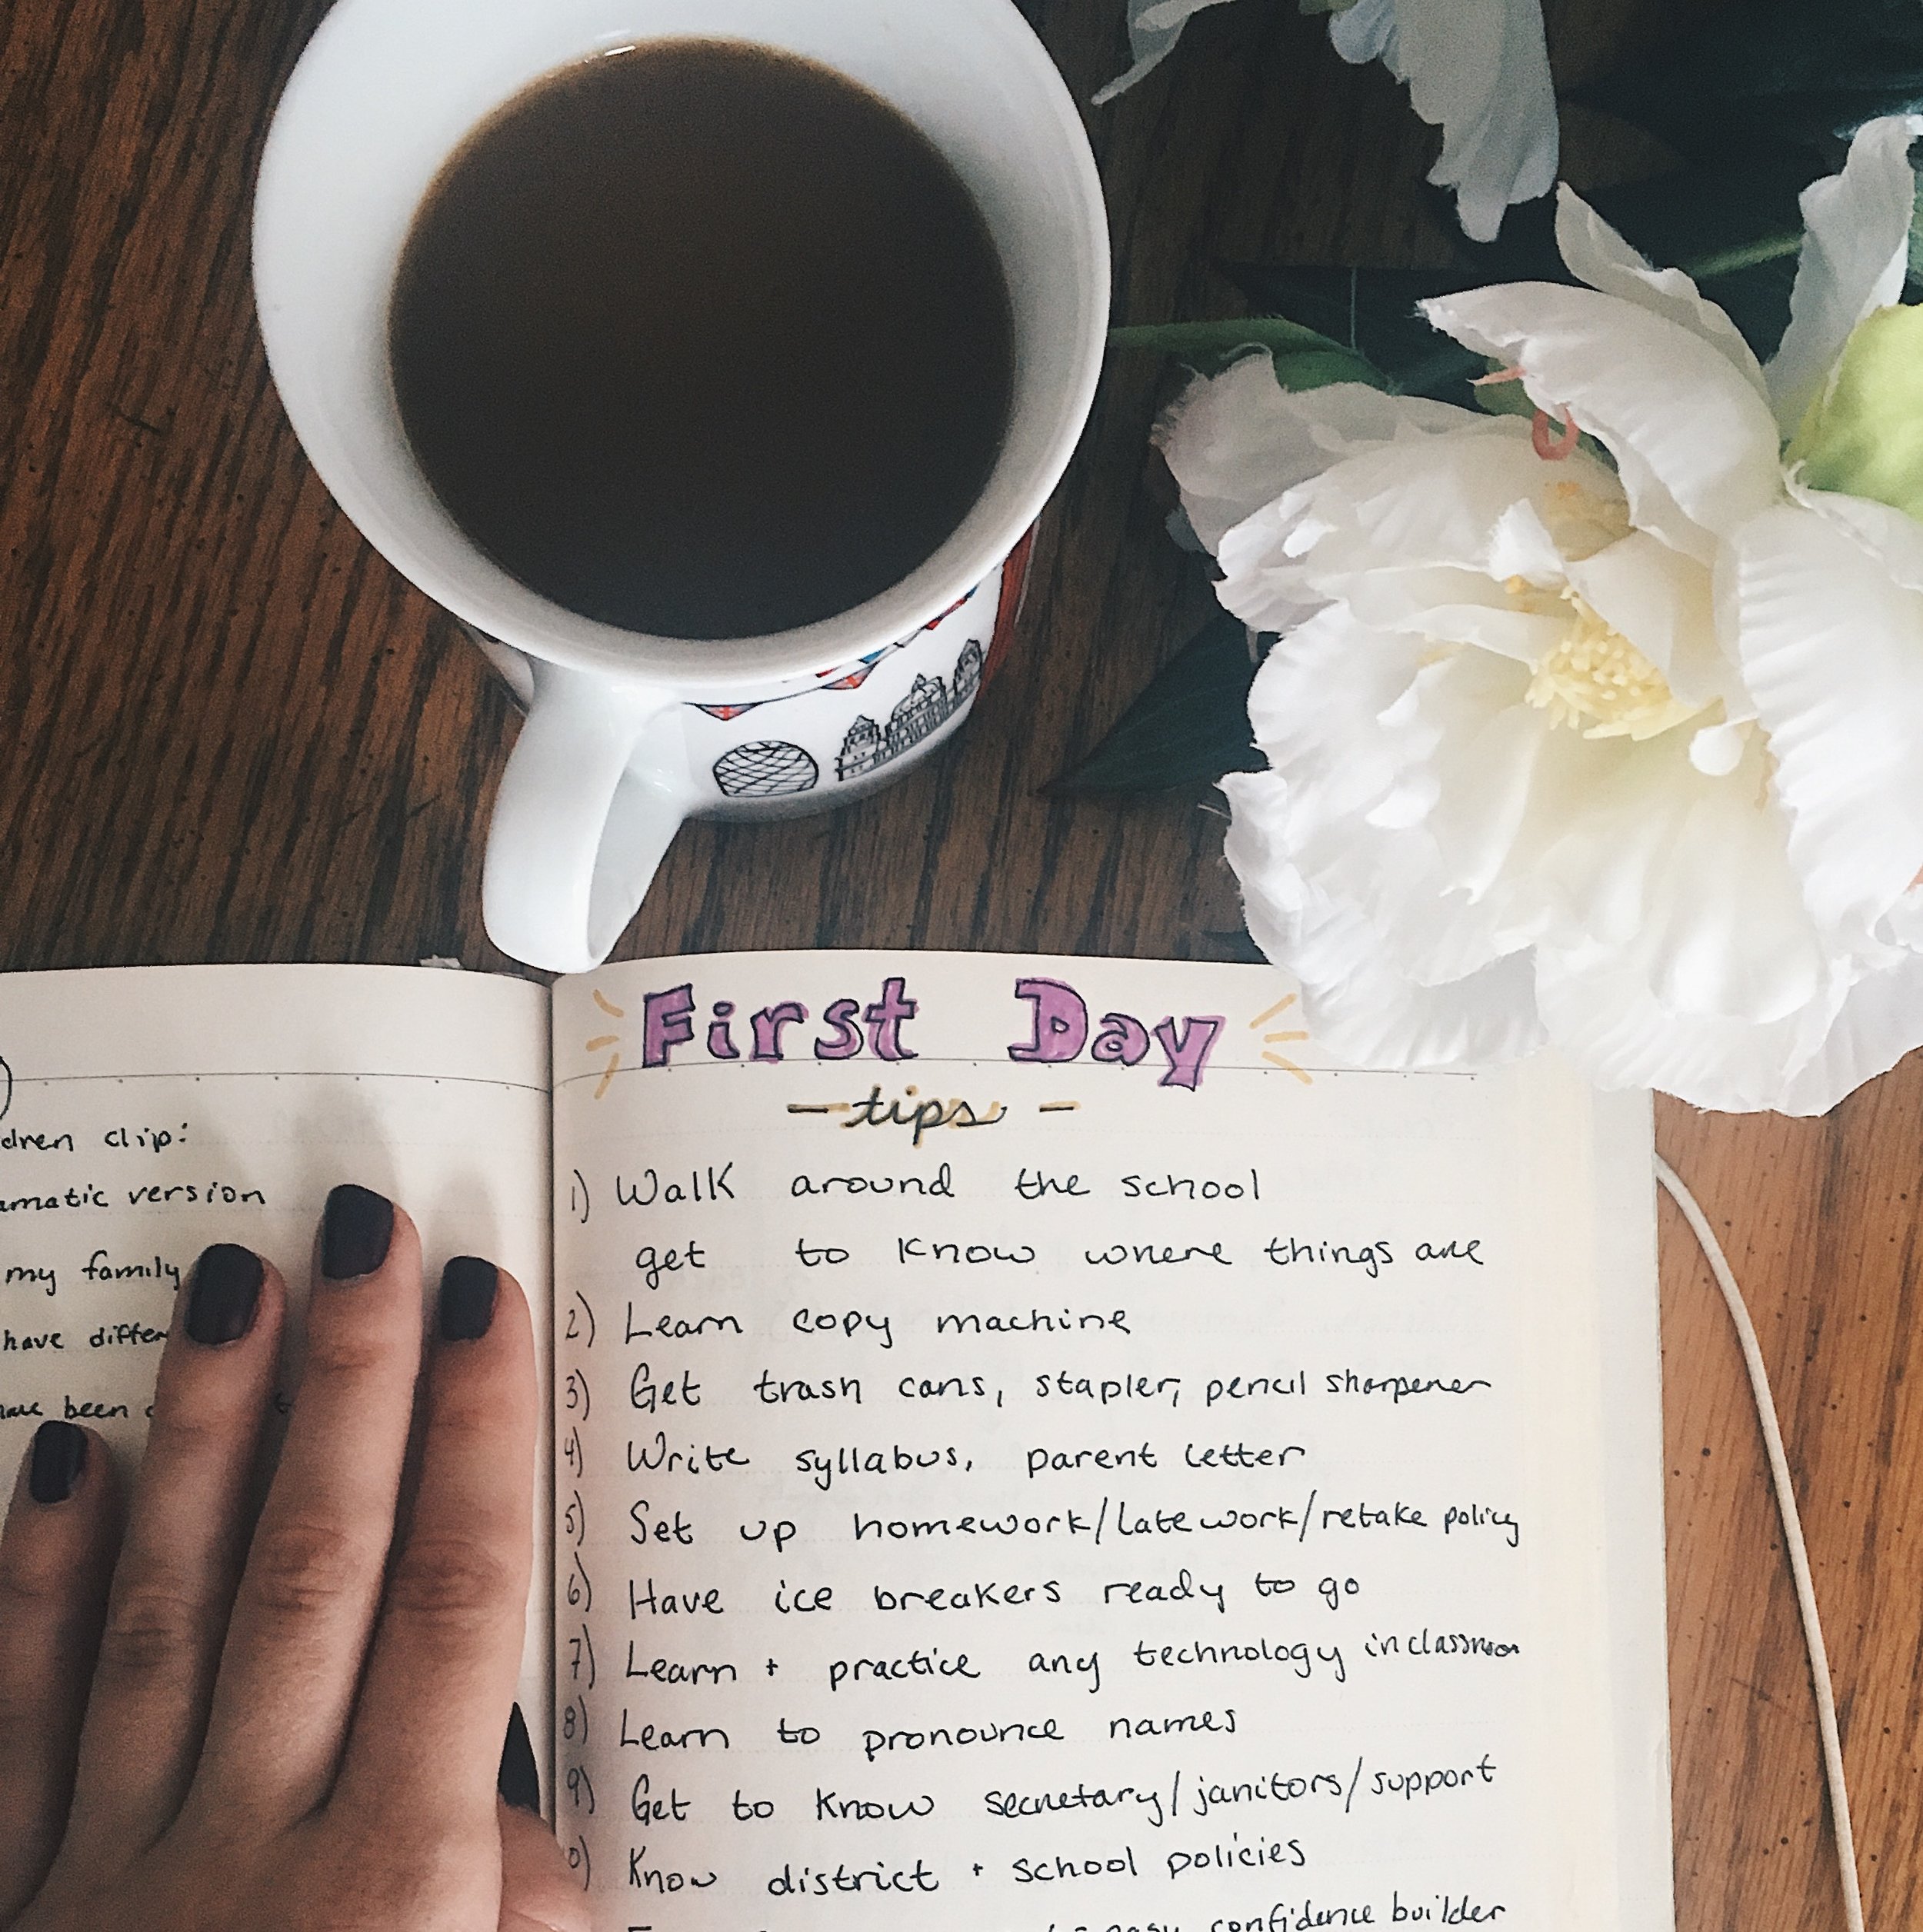 clip:
version
my family
have
been
First Day
- tips -
1) Walk around the school
get to know where things are
2) Learn copy machine
3) Get trash cans, stapler, pencil sharpener
4) Write syllabus, parent letter
5) Set up homework/late work/retake policy
6) Have ice breakers ready to go
7) Learn + practice any technology in classroom
8) Learn to pronounce names
9) Get to know secretary/janitors/support
0) Know district + school policies
easy confidence builder